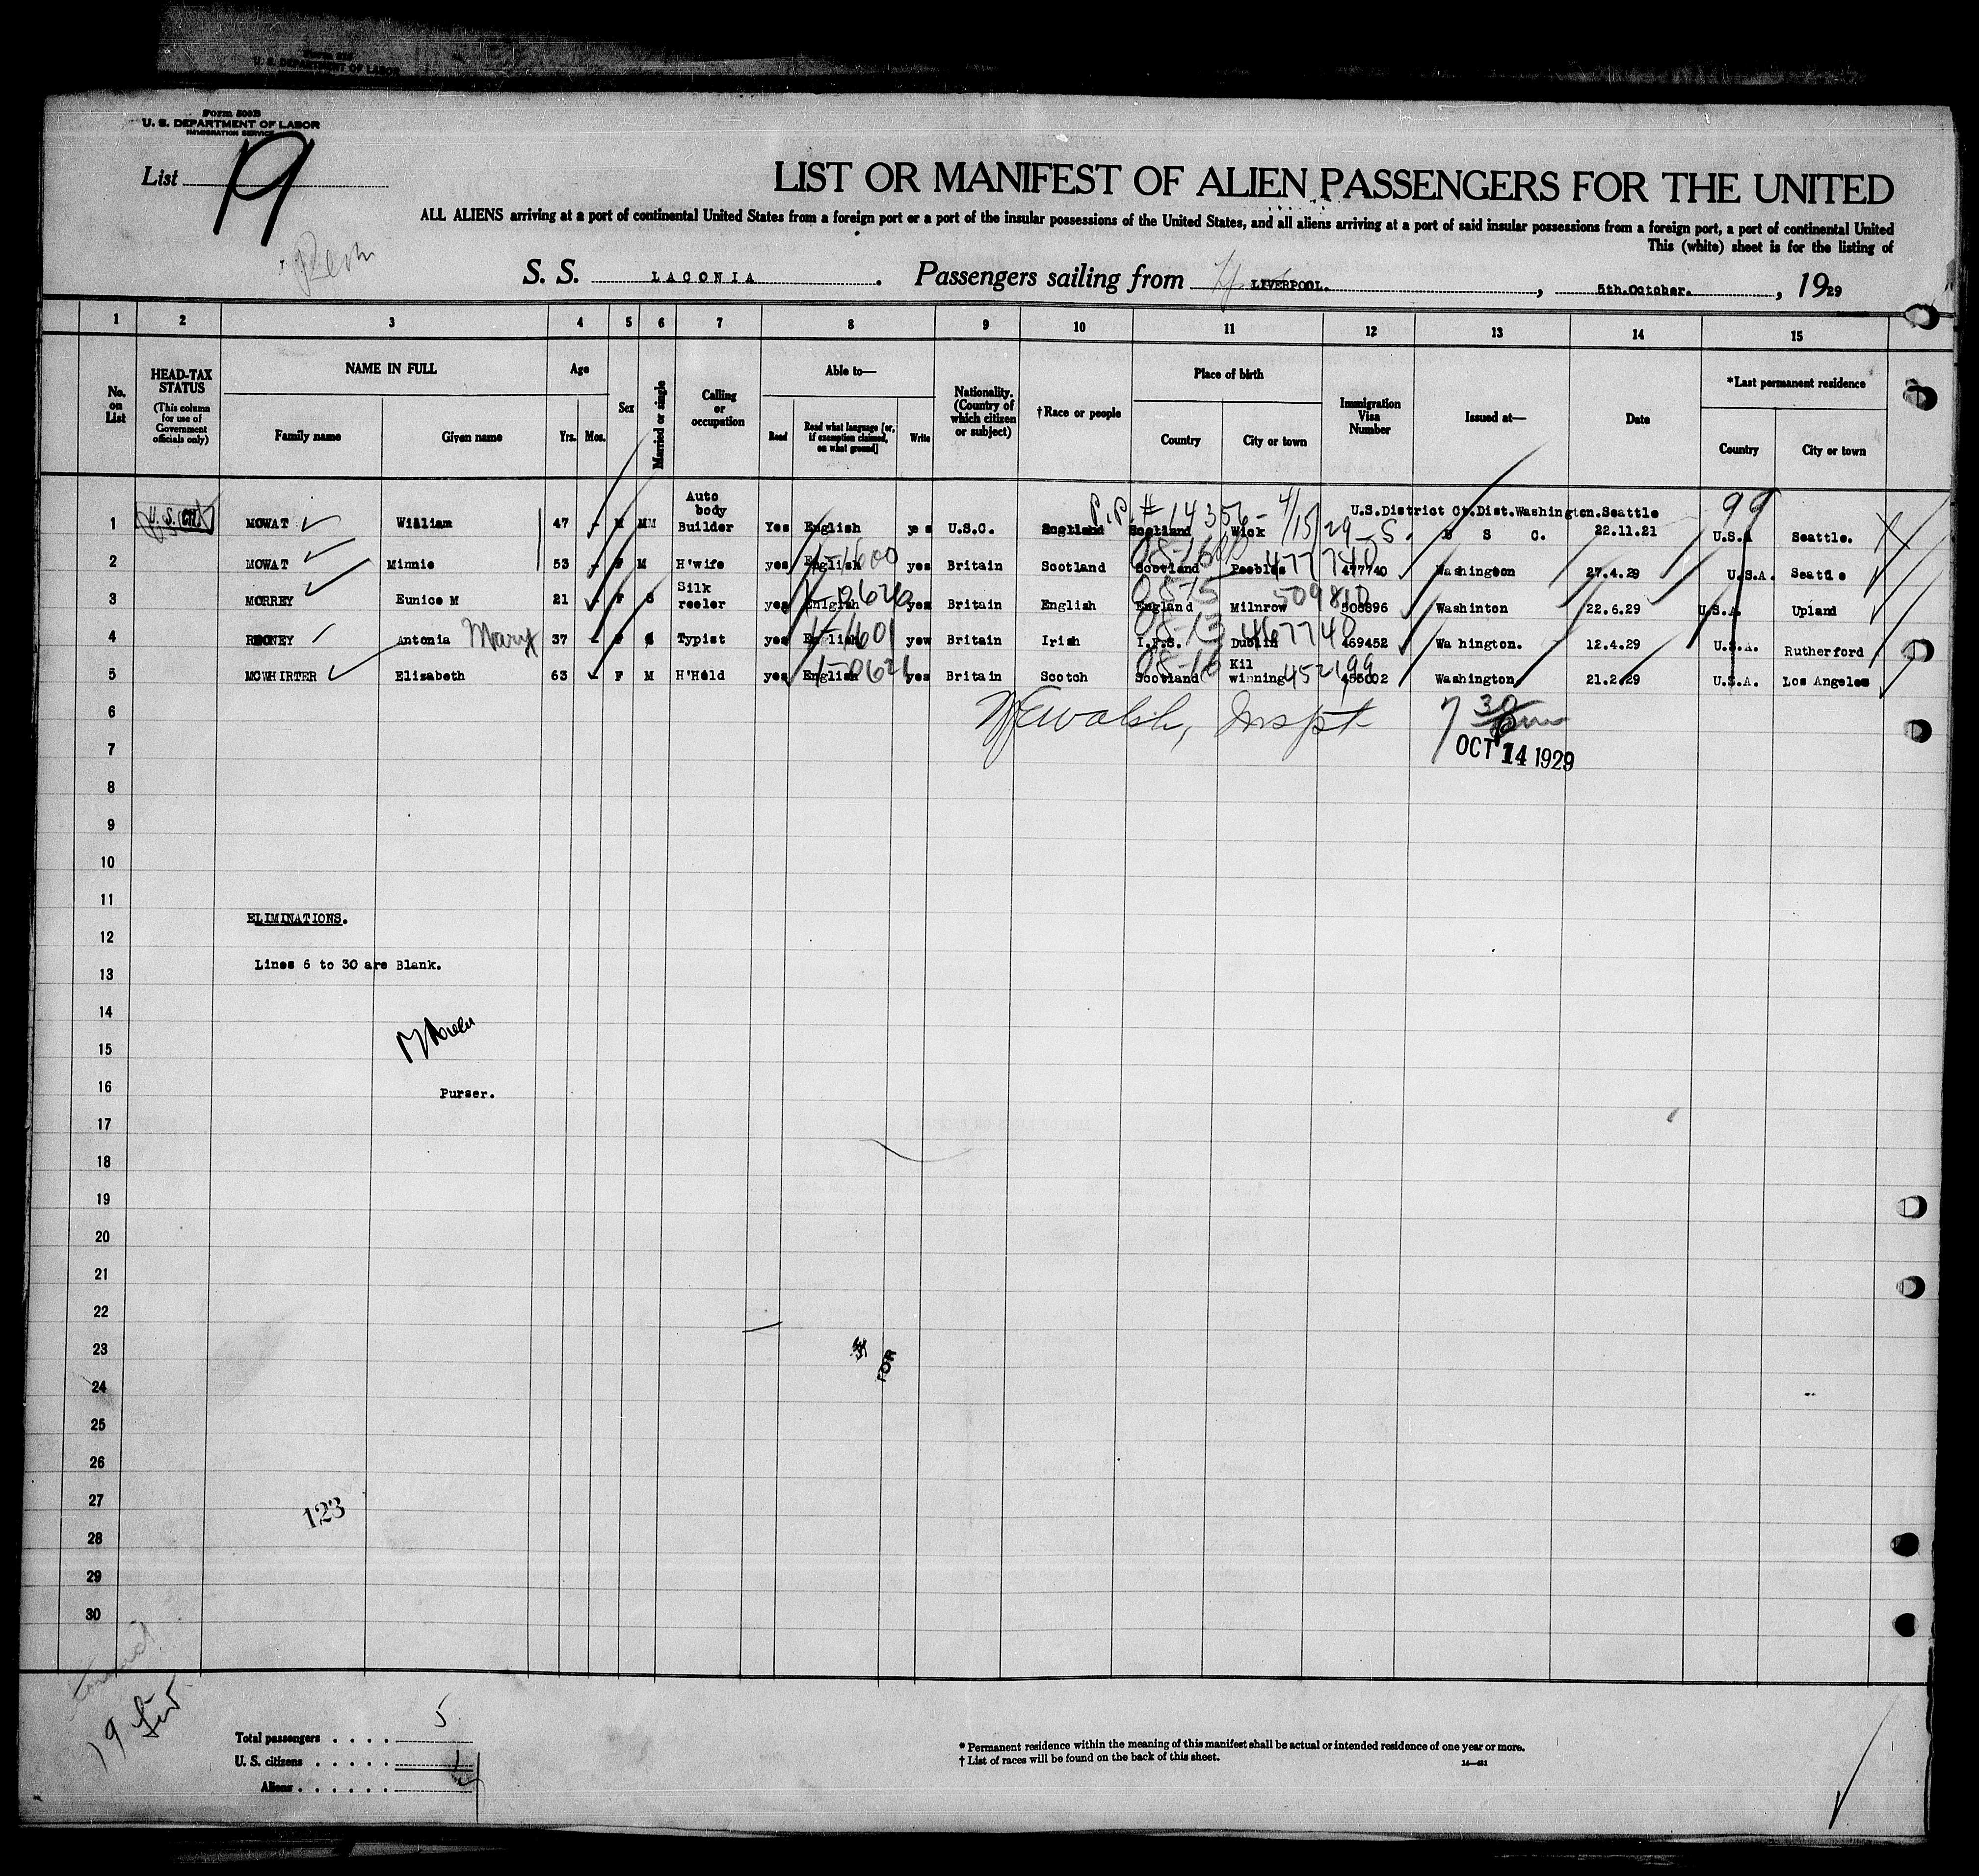 Form 500B
U. S. DEPARTMENT OF LABOR
IMMIGRATION SERVICE
List 19
LIST OR MANIFEST OF ALIEN PASSENGERS FOR THE UNITED
ALL ALIENS arriving at a port of continental United States from a foreign port or a port of the insular possessions of the United States, and all aliens arriving at a port of said insular possessions from a foreign port, a port of continental United
This (white) sheet is for the listing of
S. S. LACONIA. Passengers sailing from LIVERPOOL., 5th.October., 1929
1 2 3 4 5 6 7 8 9 10 11 12 13 14 15
No. on List
HEAD-TAX STATUS (This column for use of Government officials only)
NAME IN FULL
Family name
Given name
Age
Yrs. Mos.
Sex
Married or single
Calling or occupation
Able to—
Read
Read what language [or, if exemption claimed, on what ground]
Write
Nationality. (Country of which citizen or subject)
†Race or people
Place of birth
Country
City or town
Immigration Visa Number
Issued at—
Date
*Last permanent residence
Country
City or town
P.P. # 14356- 4/15/29-S. 99
U.S.District Ct.Dist.Washington.Seattle
1 MOWAT William 47 M M Auto body Builder Yes English yes U.S.C. Scotland Wick U S C. 22.11.21 U.S.A Seattle.
1-1600 08-16 477740
2 MOWAT Minnie 53 F M H'wife yes English yes Britain Scotland Scotland Peebles 477740 Washington 27.4.29 U.S.A. Seatle
08-15 509810
3 MORREY Eunice M 21 F S Silk reeler yes English yes Britain English England Milnrow Washinton 22.6.29 U.S.A. Upland
1-1601 08-13 467740
4 ROONEY Antonia Mary 37 F Typist yes English yew Britain Irish I.F.S. Dublin 469452 Wa hington. 12.4.29 U.S.A. Rutherford
08-16 452199
5 MCWHIRTER Elizabeth 63 F M H'Hold yes English yes Britain Scotch Scotland Kil winning Washington 21.2.29 U.S.A. Los Angeles
6 Walsh, Inspt 7 30
7 OCT 14 1929
8
9
10
11
ELIMINATIONS.
12
Lines 6 to 30 are Blank.
13
14
15
16 Purser.
17
18
19
20
21
22
23
24
25
26
27
123
28
29
30
19
Total passengers . . . . 5
U. S. citizens . . . . . 1
Aliens . . . . . . 4
* Permanent residence within the meaning of this manifest shall be actual or intended residence of one year or more.
† List of races will be found on the back of this sheet.